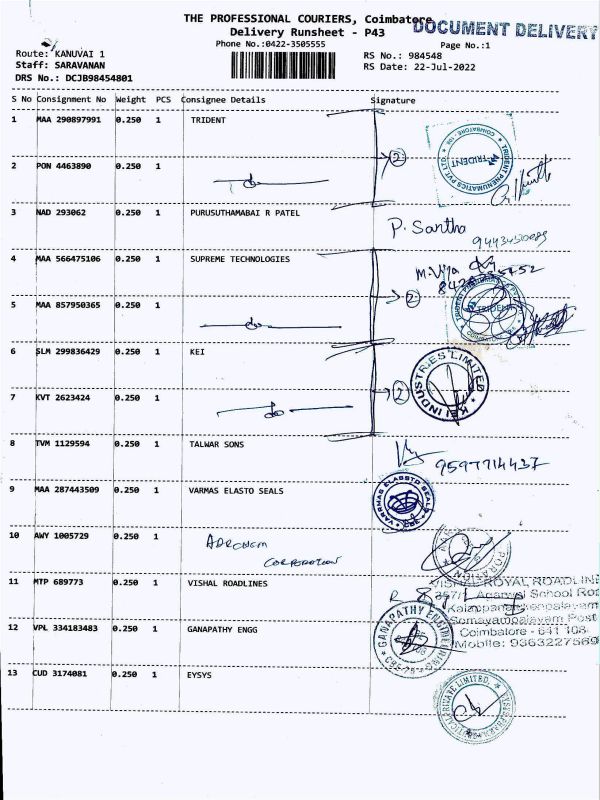 THE PROFESSIONAL COURIERS, Coimbatore
DOCUMENT DELIVERY
Delivery Runsheet - P43
Phone No.:0422-3505555
Page No.:1
Route: KANUVAI 1
RS No.: 984548
Staff: SARAVANAN
RS Date: 22-Jul-2022
DRS No.: DCJB98454801
S No Consignment No Weight PCS Consignee Details Signature
1 MAA 290897991 0.250 1 TRIDENT
TRIDENT PNEUMATICS PVT.LTD.
COIMBATORE
TRIDENT
2
2 PON 4463890 0.250 1
do
3 NAD 293062 0.250 1 PURUSUTHAMABAI R PATEL
P. Santha
4 MAA 566475106 0.250 1 SUPREME TECHNOLOGIES
2
5 MAA 857950365 0.250 1
do
TRIDENT
6 SLM 299836429 0.250 1 KEI
KEI INDUSTRIES LIMITED
2
7 KVT 2623424 0.250 1
do
8 TVM 1129594 0.250 1 TALWAR SONS
9597714437
9 MAA 287443509 0.250 1 VARMAS ELASTO SEALS
VARRMAS ELASSTO SEALS
CBE
10 AWY 1005729 0.250 1
CORPORATION
11 MTP 689773 0.250 1 VISHAL ROADLINES
VISHAL ROYAL ROADLINE
357/1 Agarwal School Road
Somayampalayam Post
Coimbatore - 641 108
Mobile: 9363227569
12 VPL 334183483 0.250 1 GANAPATHY ENGG
GANAPATHY ENGINEERING
13 CUD 3174081 0.250 1 EYSYS
PRIVATE LIMITED